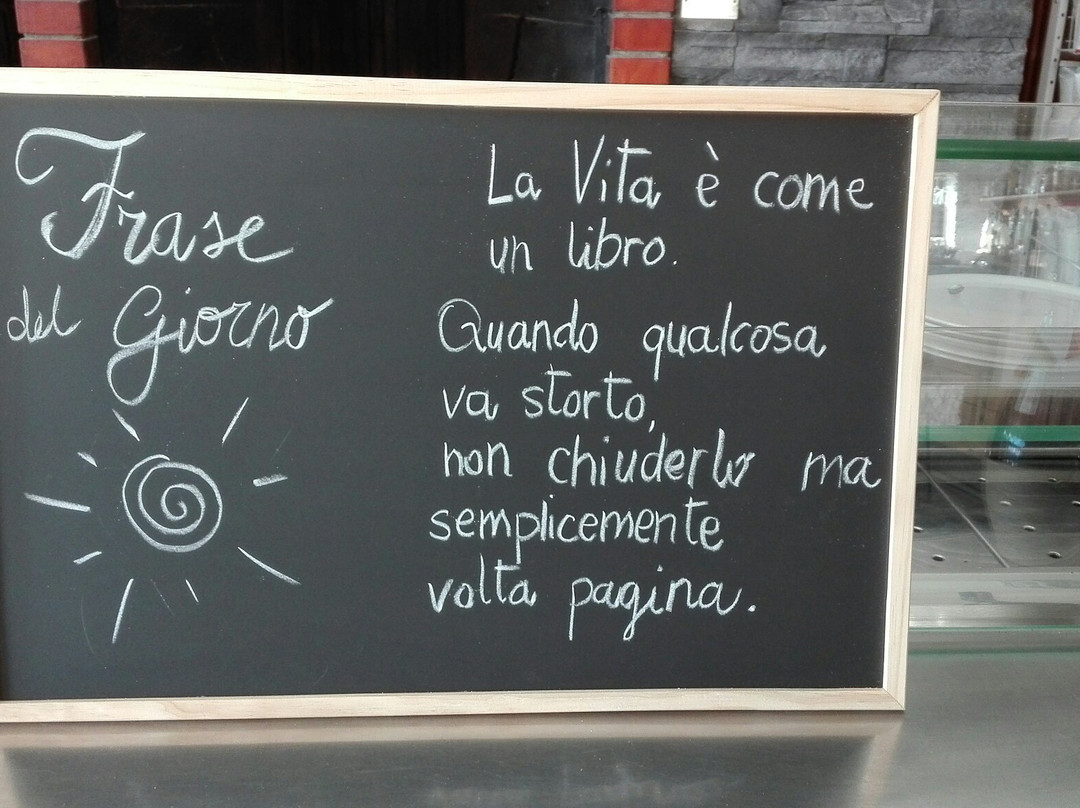 Frase
del Giorno
La Vita è come
un libro.
Quando qualcosa
va storto,
non chiuderlo ma
semplicemente
volta pagina.